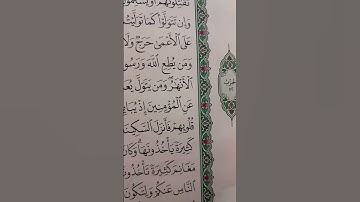 تُقَٰتِلُونَهُمْ أَوْ يُسْلِمُو
وَإِن تَتَوَلَّوْا۟ كَمَا تَوَلَّيْتُ
عَلَى ٱلْأَعْمَىٰ حَرَجٌ وَلَا
وَمَن يُطِعِ ٱللَّهَ وَرَسُو
ٱلْأَنْهَٰرُ وَمَن يَتَوَلَّ يُعَ
عَنِ ٱلْمُؤْمِنِينَ إِذْ يُبَايِ
قُلُوبِهِمْ فَأَنزَلَ ٱلسَّكِينَ
كَثِيرَةً يَأْخُذُونَهَا وَكَانَ
مَغَانِمَ كَثِيرَةً تَأْخُذُو
ٱلنَّاسِ عَنكُمْ وَلِتَكُونَ